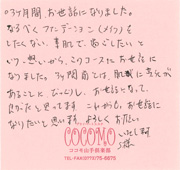 ○3ヶ月間、お世話になりました。
なるべくファンデーション(メイク)を
したくない、素肌で、過ごしたいと
いう想いから、このコースにお世話に
なりました。3ヶ月間前とは、肌質に差が
あることに びっくり、お世話になって、
良かったと思ってます。これからも、お世話に
なりたいと思います。よろしくお願い
COCOMO
ココモ山手倶楽部
TEL・FAX(0778)75-8875